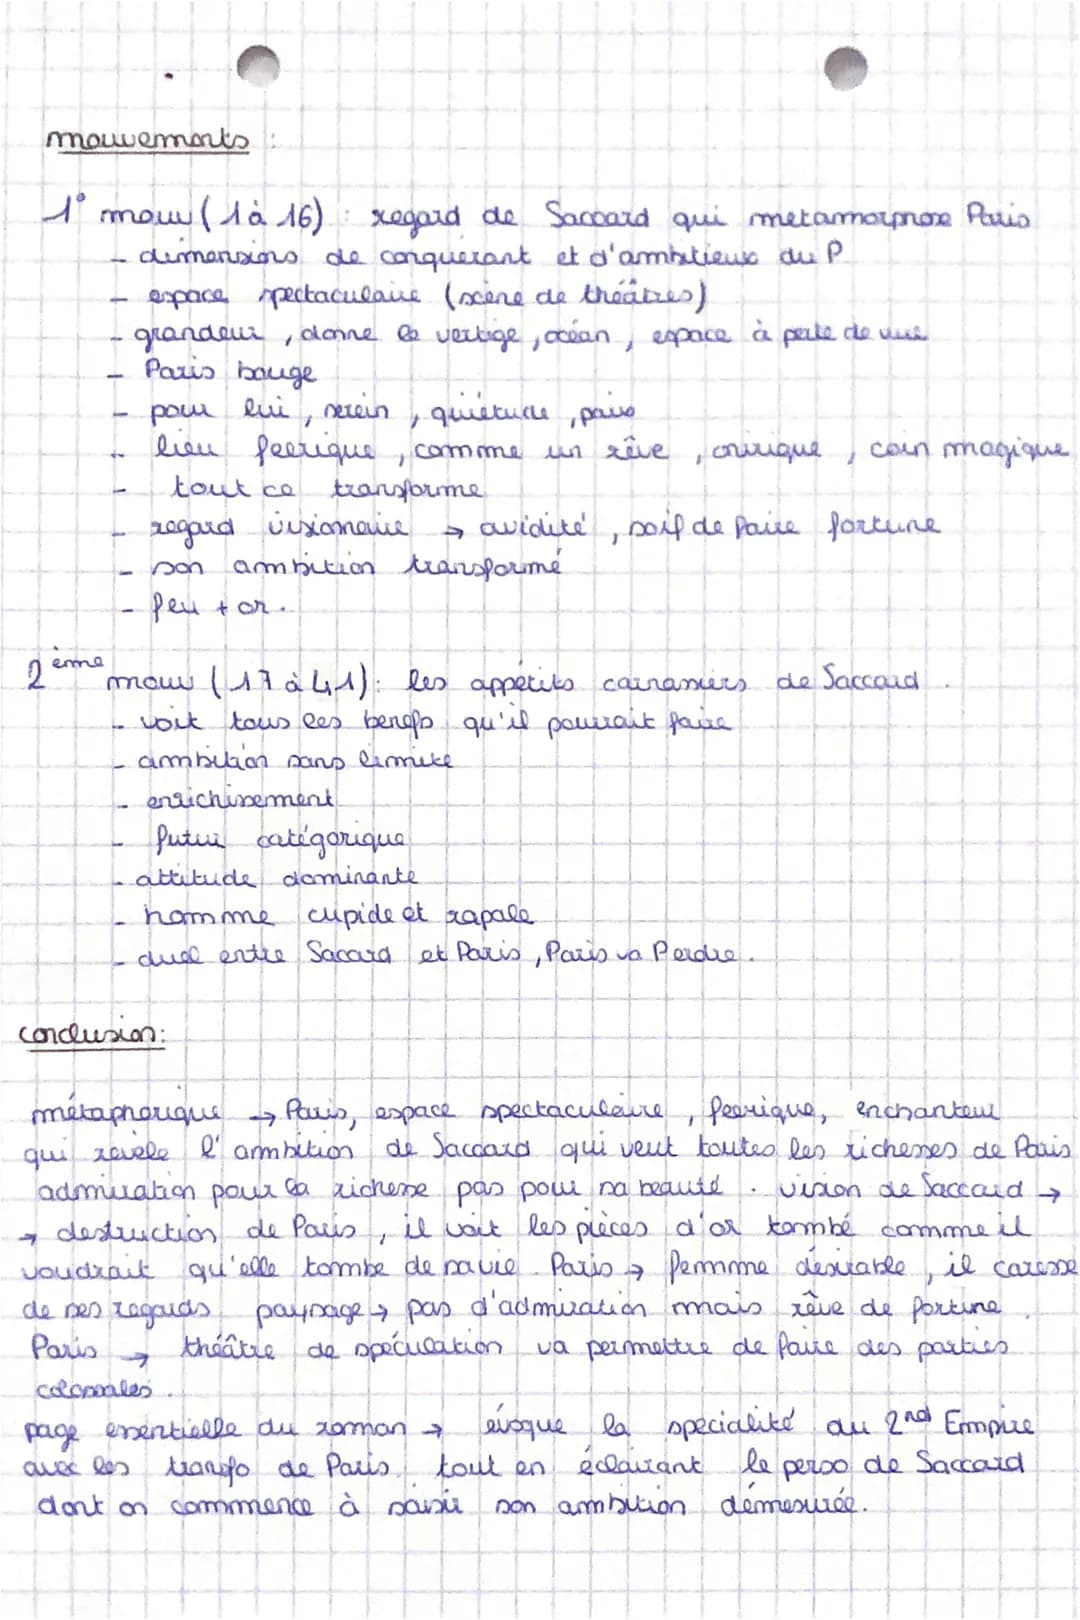 mouvements :
1° mouv (1 à 16) : regard de Saccard qui metamorphose Paris
- dimensions de conquérant et d'ambitieux du P
- espace spectaculaire (scène de théâtres)
- grandeur, donne le vertige, océan, espace à perte de vue
- Paris bouge
- pour lui, serein, quiétude, paix
- lieu feerique, comme un rêve, onirique, coin magique
- tout ce transforme
- regard visionnaire → avidité, soif de faire fortune
- son ambition transformé
- feu + or.
2ème mouv (17 à 41) : les appétits carnassiers de Saccard.
- voit tous les benefs qu'il pourrait faire
- ambition sans limite
- enrichissement
- futur catégorique
- attitude dominante
- homme cupide et rapale
- duel entre Sacard et Paris, Paris va Perdre.
conclusion:
métaphorique → Paris, espace spectaculaire, feerique, enchanteur
qui révèle l'ambition de Saccard qui veut toutes les richesses de Paris
admiration pour la richesse pas pour sa beauté. vision de Saccard →
→ destruction de Paris, il voit les pièces d'or tombé comme il
voudrait qu'elle tombe de sa vie. Paris → femme désirable, il caresse
de ses regards. paysage → pas d'admiration mais rêve de fortune.
Paris → théâtre de spéculation va permettre de faire des parties
colossales.
page essentielle du roman → évoque la specialité du 2nd Empire
avec les transfo de Paris. tout en éclairant le perso de Saccard
dont on commence à saisir son ambition démesurée.